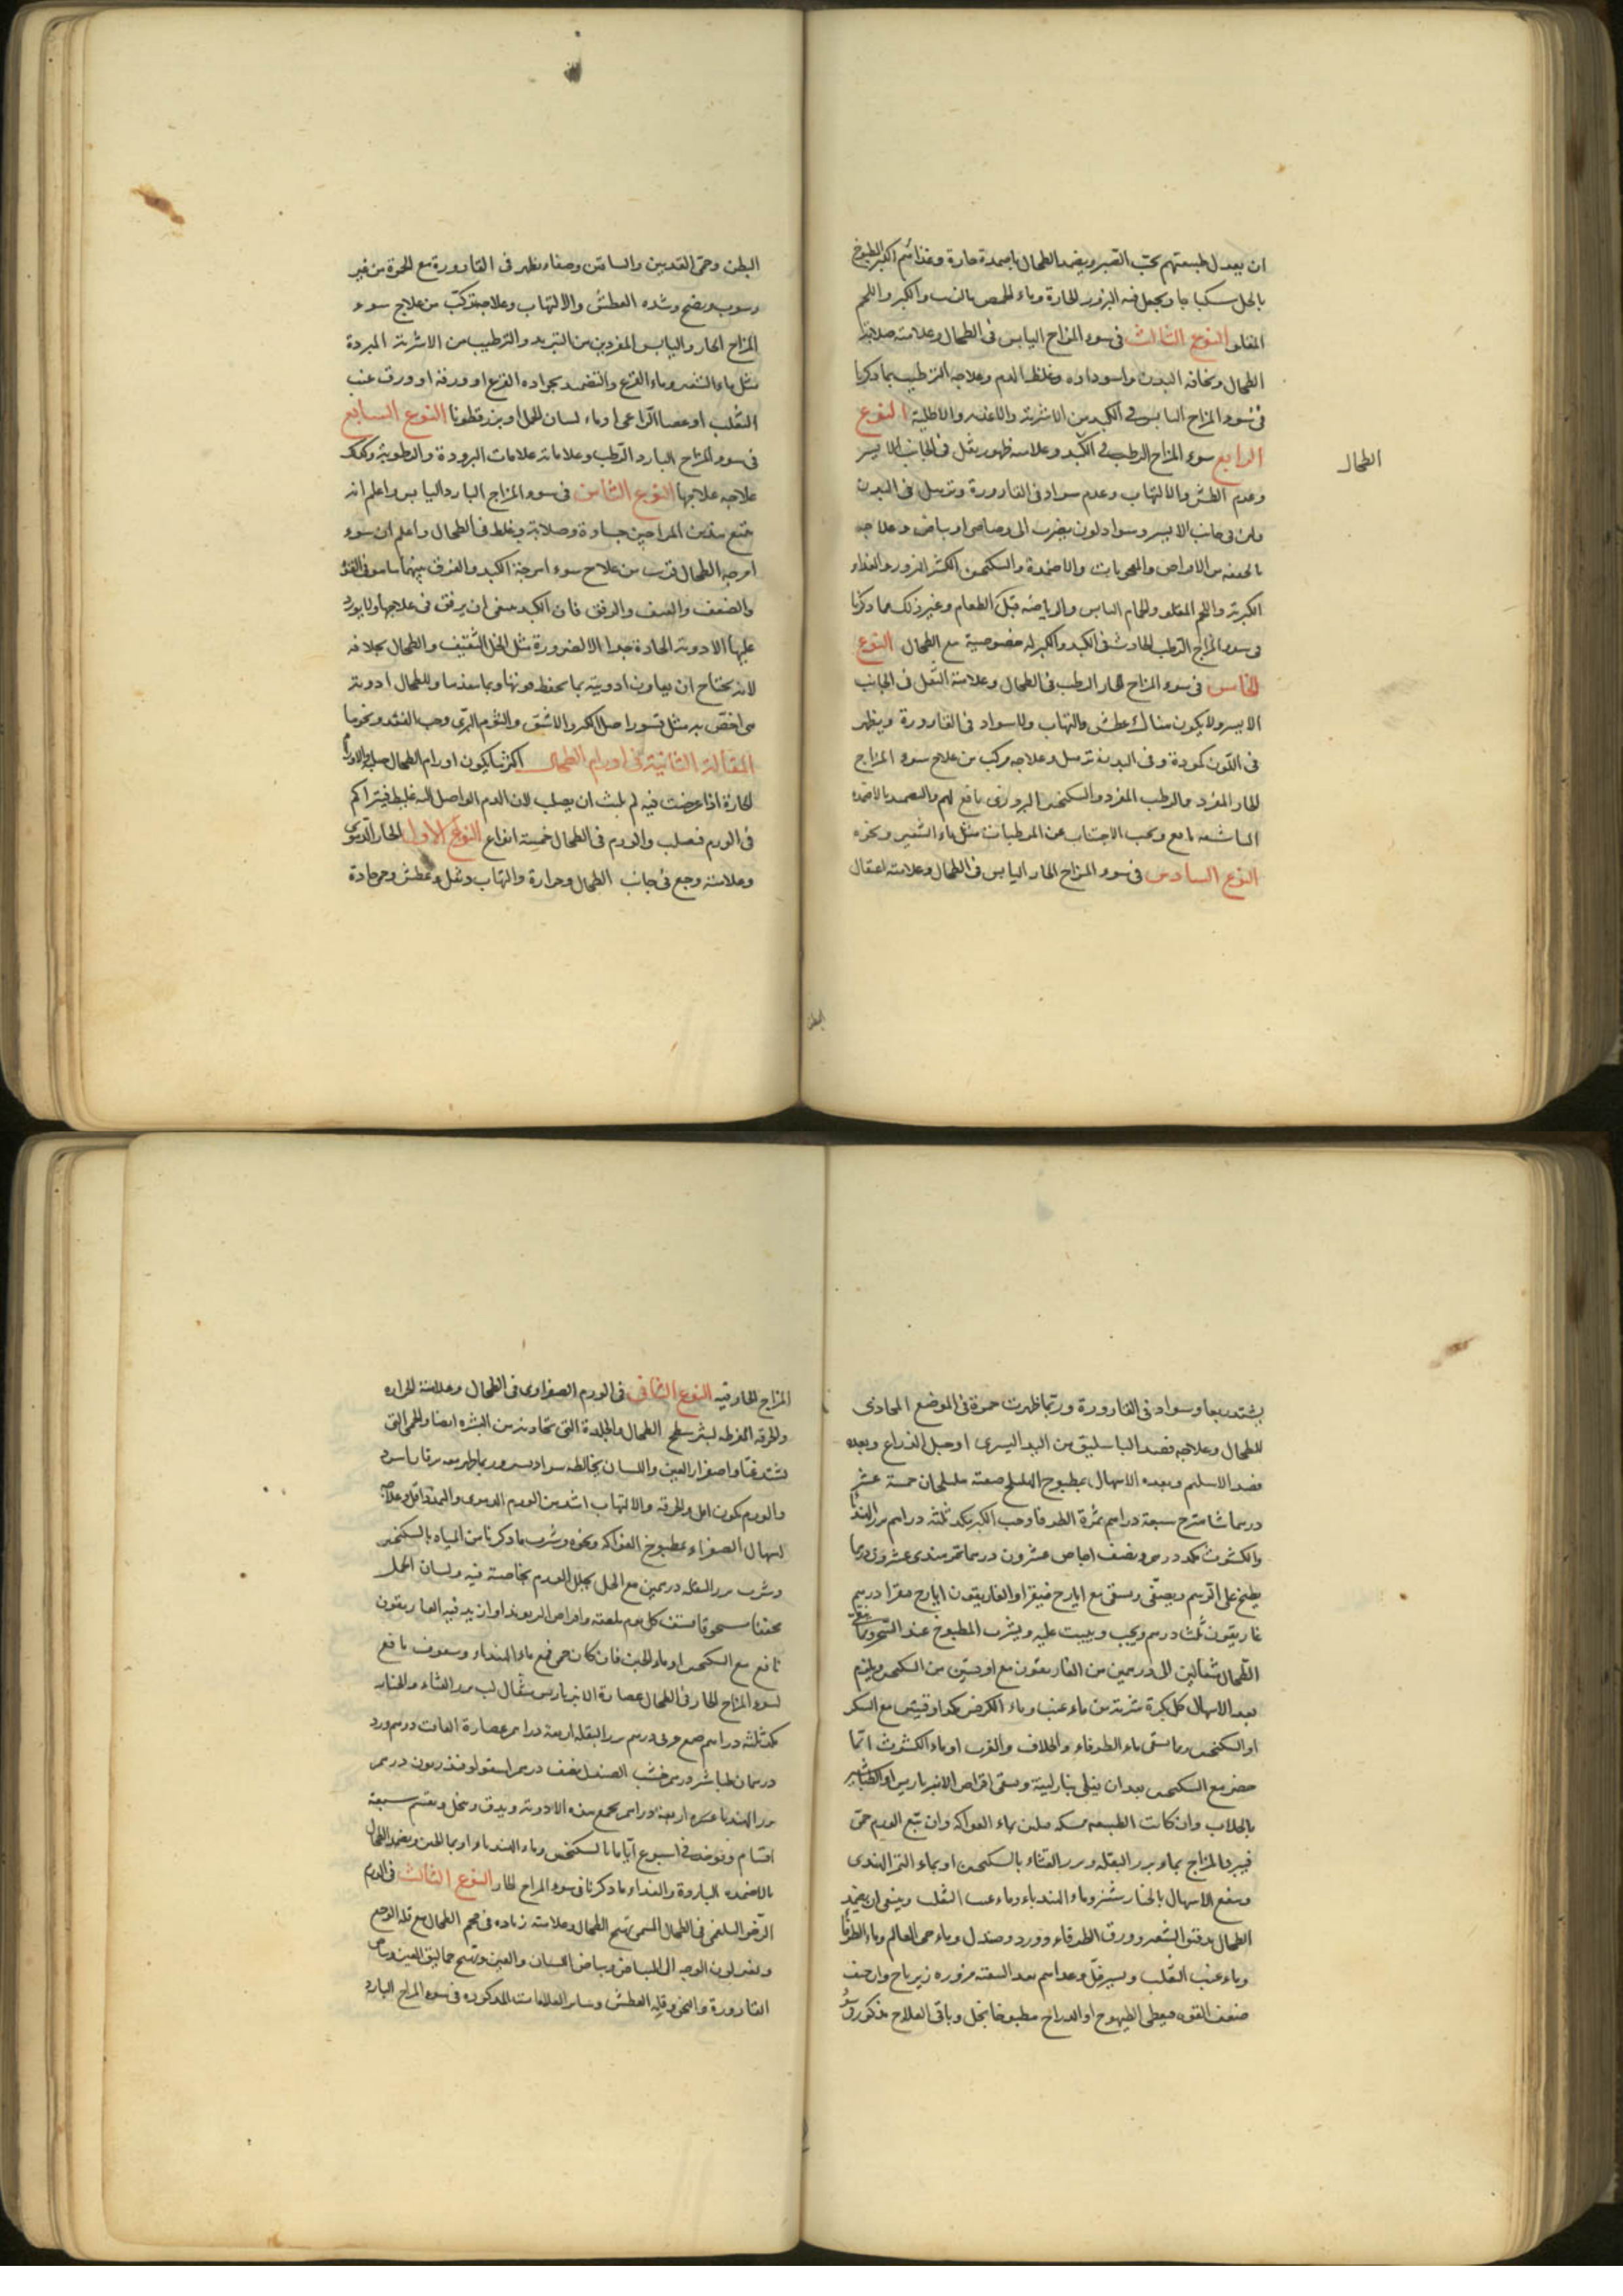 ان يعدل طبيعتهم بحب الصبر ويضمد الطحال باضمدة حارة وغذائهم الكبر المطبوخ
بالخل سكباجا ويجعل فيه البزور الحارة وماء الحمص بالشبت والكبر واللحم
المقلو النوع الثالث فى سوء المزاج اليابس فى الطحال وعلامته صلابة
الطحال ونحافة البدن واسوداده وغلظ الدم وعلاجه الترطيب بما ذكرنا
فى سوء المزاج اليابس فى الكبد من الاشربة والاغذية والاطلية النوع
الرابع سوء المزاج الرطب فى الكبد وعلامته ظهور ثقل فى الجانب الايسر
وعدم العطش والالتهاب وعدم سواد فى القارورة وترهل فى البدن
ولين فى جانب الايسر وسواد لون يضرب الى رصاصى او بياض وعلاجه
بالحقنة من الاقراص والمعجونات والاضمدة والسكنجبين الكثير البزور والغذاء
الكبرية واللحم المقلو والحمام اليابس والرياضة قبل الطعام وغير ذلك مما ذكرنا
فى سوء المزاج الرطب الحادث فى الكبد والكبر له خصوصية مع الطحال النوع
الخامس فى سوء المزاج الحار الرطب فى الطحال وعلامته الثقل فى الجانب
الايسر ولا يكون هناك عطش والتهاب ولا سواد فى القارورة ويظهر
فى اللون كمودة وفى البدن ترهل وعلاجه مركب من علاج سوء المزاج
الحار المفرد والرطب المفرد والسكنجبين البزورى نافع لهم والتضميد بالاضمدة
الناشفة نافع ويجب الاجتناب عن المرطبات مثل ماء الشعير ونحوه
النوع السادس فى سوء المزاج الحار اليابس فى الطحال وعلامته اعتقال
الطحال
البطن
البطن وحمى القدمين والساقين وصفاء يظهر فى القارورة مع الحمرة من غير
رسوب ونضج وشدة العطش والالتهاب وعلاجه مركب من علاج سوء
المزاج الحار واليابس المفردين من التبريد والترطيب من الاشربة المبردة
مثل ماء الشعير وماء القرع والتضميد بجرادة القرع او ورقه او ورق عنب
الثعلب او عصا الراعى او ماء لسان الحمل او بزرقطونا النوع السابع
فى سوء المزاج البارد الرطب وعلاماته علامات البرودة والرطوبة وكذلك
علاجه علاجها النوع الثامن فى سوء المزاج البارد اليابس واعلم انه
يتبع هذين المزاجين جساوة وصلابة وغلظ فى الطحال واعلم ان سوء
امزجة الطحال قريب من علاج سوء امزجة الكبد والفرق بينهما هو فى القوة
والضعف والعنف والرفق فان الكبد ينبغى ان يرفق فى علاجها ولا يورد
عليها الادوية الحادة جدا الا لضرورة مثل الخل الثقيف والطحال بخلافه
لانه يحتاج ان يعاون ادويته بما يحفظ قوتها وبما ينفذها وللطحال ادوية
هى اخص به مثل قشور اصل الكبر والاشق والثوم البرى وحب الفقد ونحوها
المقالة الثانية فى اورام الطحال اكثر ما يكون اورام الطحال صلبة والاورام
الحارة اذا عرضت فيه لم يلبث ان يصلب لان الدم الواصل اليه غليظ فيتراكم
فى الورم فيصلب والورم فى الطحال خمسة انواع النوع الاول الحار الدموى
وعلامته وجع فى جانب الطحال وحرارة والتهاب وثقل وعطش وحمى حادة
يشتد ربعا وسواد فى القارورة وربما ظهرت حمرة فى الموضع المحاذى
للطحال وعلاجه فصد الباسليق من اليد اليسرى او حبل الذراع وبعده
فصد الاسليم وبعده الاسهال بمطبوخ الهليلج صفته هليلجان خمسة عشر
درهما شاهترج سبعة دراهم ثمرة الطرفا وحب الكبر بكد ثلثة دراهم بزر الهندبا
والكشوث بكد درهم ونصف اجاص عشرون درهما تمرهندى عشرون درهما
يطبخ على الرسم ويصفى ويسقى مع ايارج فيقرا والغاريقون ايارج فيقرا درهم
غاريقون ثلث درهم ويحبب ويبيت عليه ويشرب المطبوخ عند السحر
الطحال مثقالين الى درهمين من الغاريقون مع اوقيتين من السكنجبين ويلزم
بعد الاسهال كل بكرة شربة من ماء عنب وماء الكرفس بكد اوقيتين مع السكر
او السكنجبين وربما يسقى ماء الطرفاء والخلاف والغرب او ماء الكشوث ايما
حضر مع السكنجبين بعد ان يغلى بنار لينة ويسقى اقراص الانبرباريس او الطباشير
بالجلاب وان كانت الطبيعة ممسكة ملين بماء الفواكه وان تتبع الورم حمى
فيبرد المزاج بماء بزر البقلة وبزر القثاء بالسكنجبين او بماء التمر الهندى
وينفع الاسهال بالخيارشنبر وماء الهندباء وماء عنب الثعلب وينبغى ان يضمد
الطحال بدقيق الشعير وورق الطرفاء وورد وصندل وماء حى العالم وماء الطرفا
وماء عنب الثعلب ويسير خل وغذاهم بعد التنقية مزورة زيرباج وان خيف
ضعف القوة فيعطى الطيهوج او الدراج مطبوخا بخل وباقى العلاج مذكور فى سوء
المزاج الحار فيه النوع الثانى فى الورم الصفراوى فى الطحال وعلامته الحرارة
والحرقة المفرطة لبشر سطح الطحال والجلدة التى تحاذيه من البشرة ايضا والحمى التى
تشتد غبا واصفرار العين واللسان يخالطه سواد يسير وربما ظهر معه يرقان اسود
والورم يكون اقل والحرقة والالتهاب اشد من الورم الدموى والتمدد اقل وعلاجه
اسهال الصفراء بمطبوخ الفواكه ونحوه وشرب ما ذكرنا من المياه بالسكنجبين
وشرب بزر البقلة درهمين مع الخل يحلل الورم بخاصية فيه ولسان الحمل
مجففا مسحوقا يستف كل يوم ملعقة واقراص الريوند او ان يزيد فيه الغاريقون
نافع مع السكنجبين او ماء الجبن فان كان حمى فمع ماء الهندباء وسفوف نافع
لسوء المزاج الحار فى الطحال عصارة الانبرباريس مثقال لب بزر القثاء والخيار
بكد ثلثة دراهم صمغ عربى درهم بزر البقلة اربعة دراهم عصارة الغافت درهم ورد
درهمان طباشير درهم خشب الصندل نصف درهم اسقولوقندريون درهم
بزر الهندبا اربعة دراهم يجمع هذه الادوية ويدق وينخل ويقسم سبعة
اقسام ويؤخذ فى اسبوع اياما بالسكنجبين وماء الهندباء او بماء الجبن ويضمد الطحال
بالاضمدة الباردة والغذاء ما ذكرنا فى سوء المزاج الحار النوع الثالث فى الورم
الرخو البلغمى فى الطحال المسمى تهبج الطحال وعلامته زيادة فى حجم الطحال مع قلة الوجع
وتغير لون الوجه الى البياض وبياض اللسان والعين وتهبج حماليق العين وبياض
القارورة وقلة العطش وسائر العلامات المذكورة فى سوء المزاج البارد